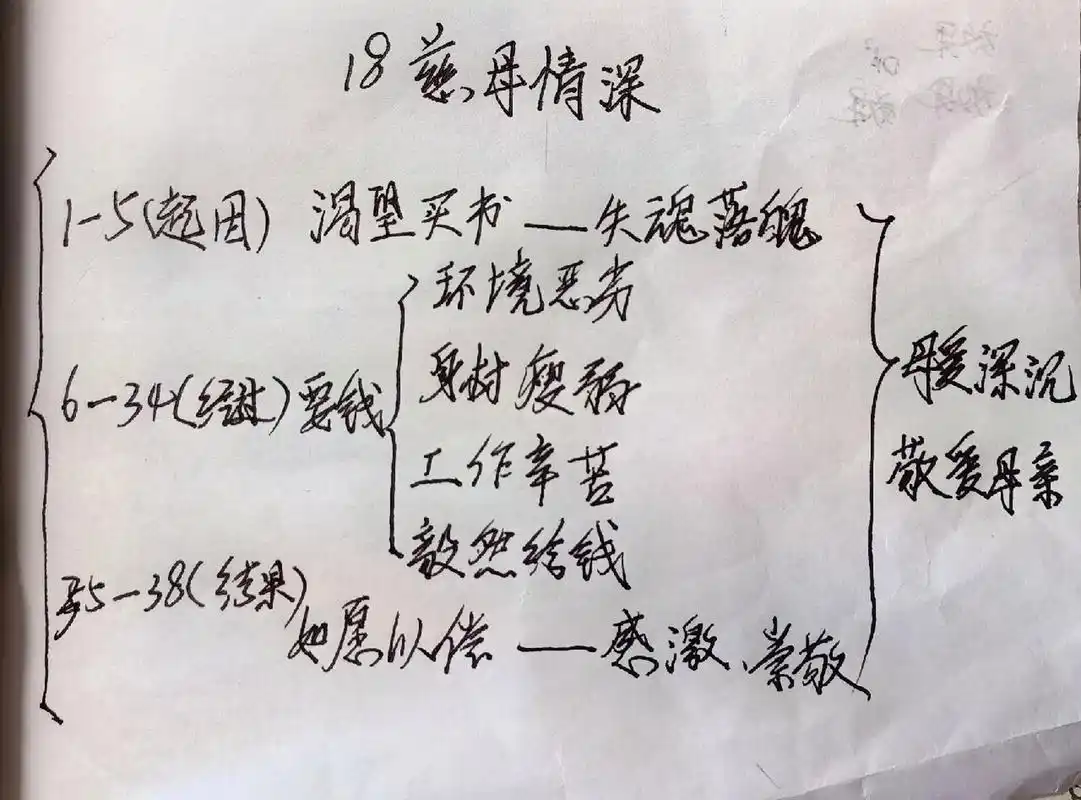 18 慈母情深
1-5(起因) 渴望买书 — 失魂落魄
环境恶劣
身材瘦弱
6-34(经过)要钱
工作辛苦
毅然给钱
35-38(结果)
如愿以偿 — 感激、崇敬
母爱深沉
敬爱母亲